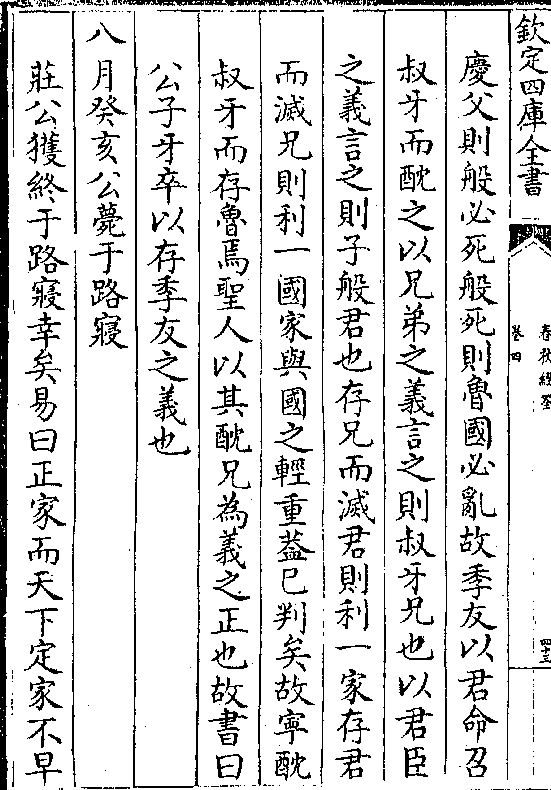 欽定四庫全書
春秋經筌
卷四
四十三
慶父則般必死般死則魯國必亂故季友以君命召
叔牙而酖之以兄弟之義言之則叔牙兄也以君臣
之義言之則子般君也存兄而滅君則利一家存君
而滅兄則利一國家與國之輕重葢已判矣故寧酖
叔牙而存魯焉聖人以其酖兄為義之正也故書曰
公子牙卒以存季友之義也
八月癸亥公薨于路寢
莊公獲終于路寢幸矣易曰正家而天下定家不早